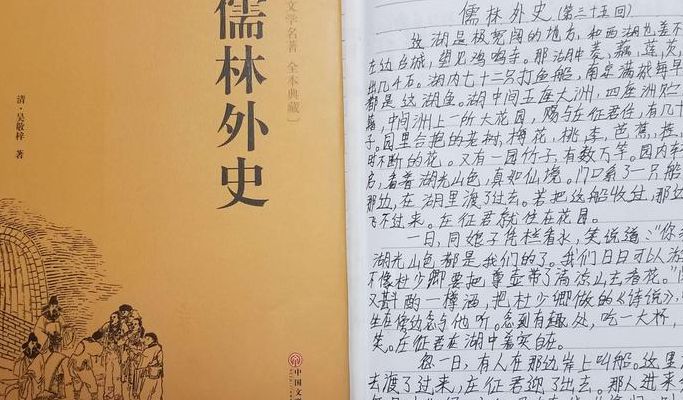 文学名著 全本典藏〕
儒林外史
清·吴敬梓 著
中国文
儒林外史(第三十五回)
这湖是极宽阔的地方,和西湖也差不
左边台城,望见鸡鸣寺。那湖中菱、藕、莲、芡,
出几千石。湖内七十二只打鱼船,南京满城每早
都是这湖鱼。湖中间五座大洲,四座洲贮
籍,中间洲上一所大花园,赐与庄征君住,有几十
子。园里合抱的老树,梅花,桃、李,芭蕉,桂、
时不断的花。又有一园竹子,有数万竿。园内轩
启,看着湖光山色,真如仙境。门口系了一只船
那边,在湖里渡了过去。若把这船收过,那边
飞不过来。庄征君就住在花园。
一日,同娘子凭栏看水,笑说道:“你
湖光山色都是我们的了。我们日日可以游
不像杜少卿要把尊壶带了清凉山去看花。”
又斟酌一樽酒,把杜少卿做的《诗说》,
坐在傍边念与他听。念到有趣处,吃一大杯,
笑。庄征君在湖中着实自在。
忽一日,有人在那边岸上叫船。这里
去渡了过来,庄征君迎了出去。那人进来